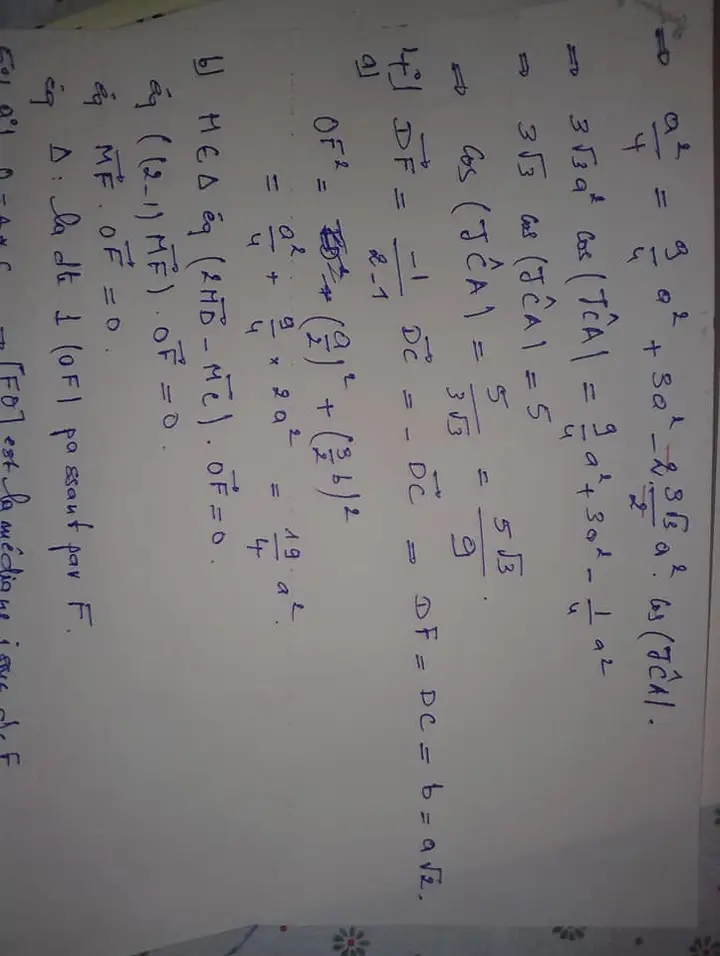 ⇒ a²/4 = 9/4 a² + 3a² - 2 · 3√3/2 a² · cos(JĈA).
⇒ 3√3 a² cos(JĈA) = 9/4 a² + 3a² - 1/4 a²
⇒ 3√3 cos(JĈA) = 5
⇒ cos(JĈA) = 5/3√3 = 5√3/9.
4°)
a) DF⃗ = -1/2-1 DC⃗ = - DC⃗ ⇒ DF = DC = b = a√2.
OF² = (a/2)² + (3/2 b)²
= a²/4 + 9/4 × 2a² = 19/4 a².
b) M ∈ Δ éq (2MD⃗ - MC⃗) · OF⃗ = 0.
éq ((2-1) MF⃗) · OF⃗ = 0.
éq MF⃗ · OF⃗ = 0.
éq Δ : la dt ⊥ (OF) passant par F.
5°) a°) ⇒ [FO] est la médiane issue de F